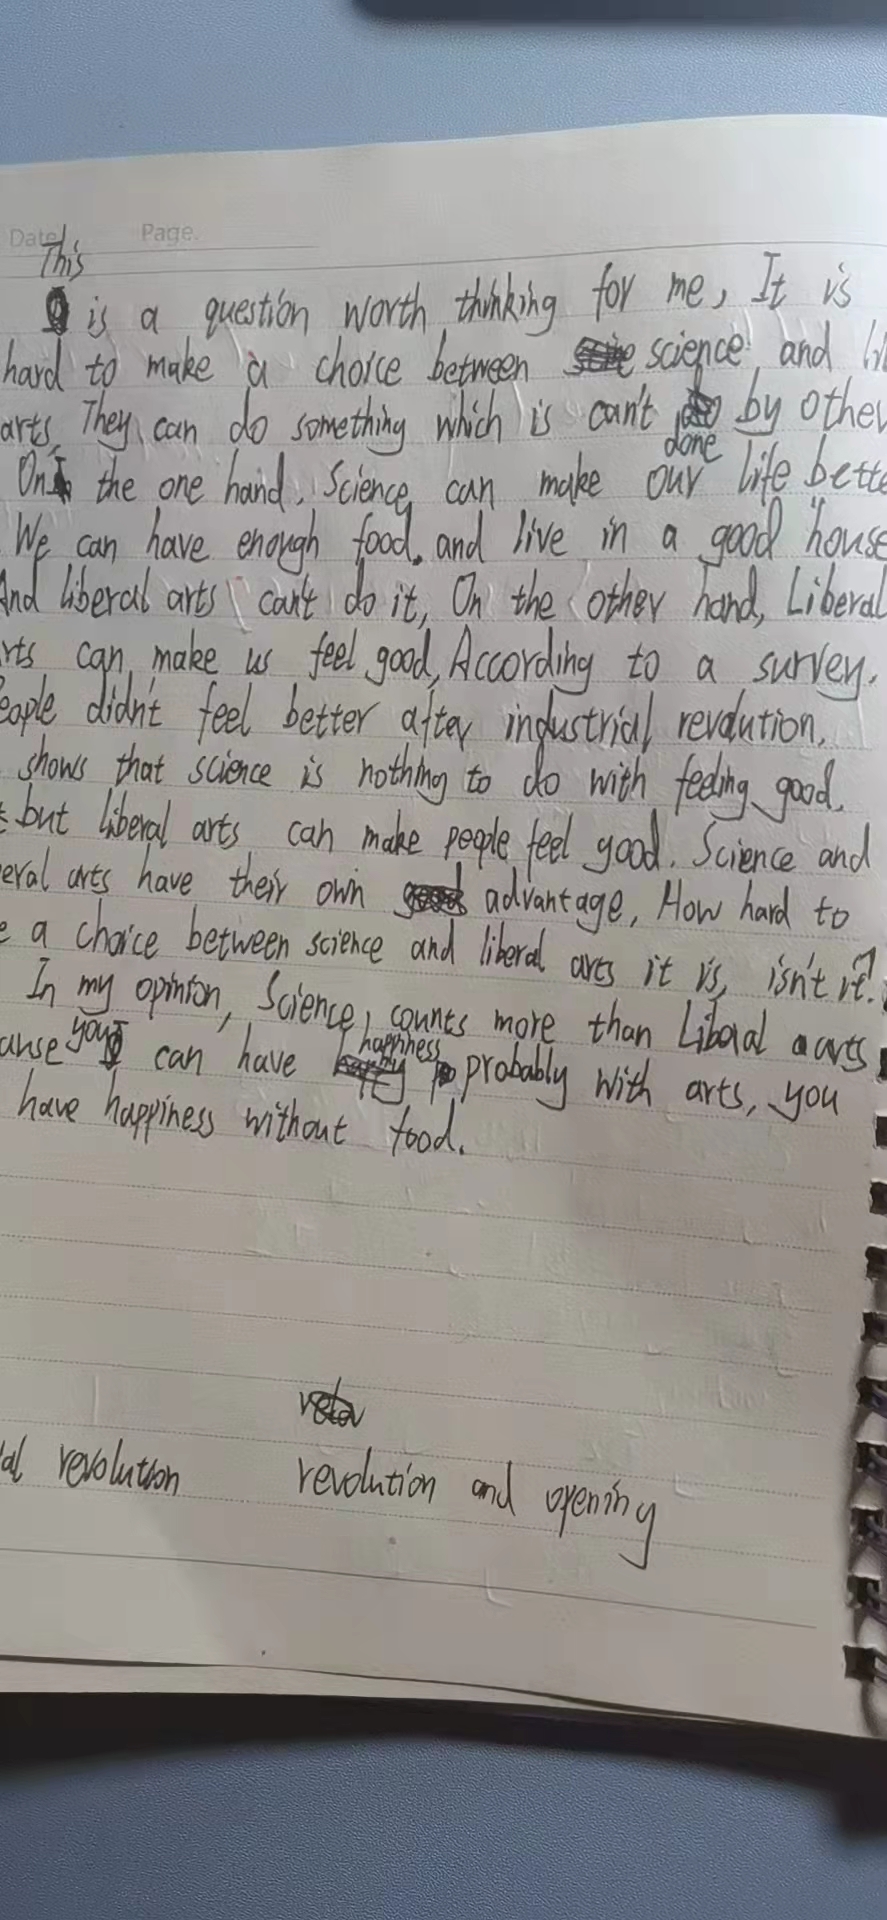 Date Page.
This
is a question worth thinking for me, It is
hard to make a choice between science and
arts, They can do something which is can't by other
done
On the one hand, Science can make our life bette
We can have enough food, and live in a good house
And liberal arts can't do it, On the other hand, Liberal
rts can make us feel good, According to a survey,
eople didn't feel better after industrial revolution,
shows that science is nothing to do with feeling good.
but liberal arts can make people feel good. Science and
eral arts have their own advantage, How hard to
e a choice between science and liberal arts it is, isn't it?
In my opinion, Science, counts more than Liberal arts
ause you can have happiness probably with arts, you
have happiness without food.
ial revolution revolution and opening